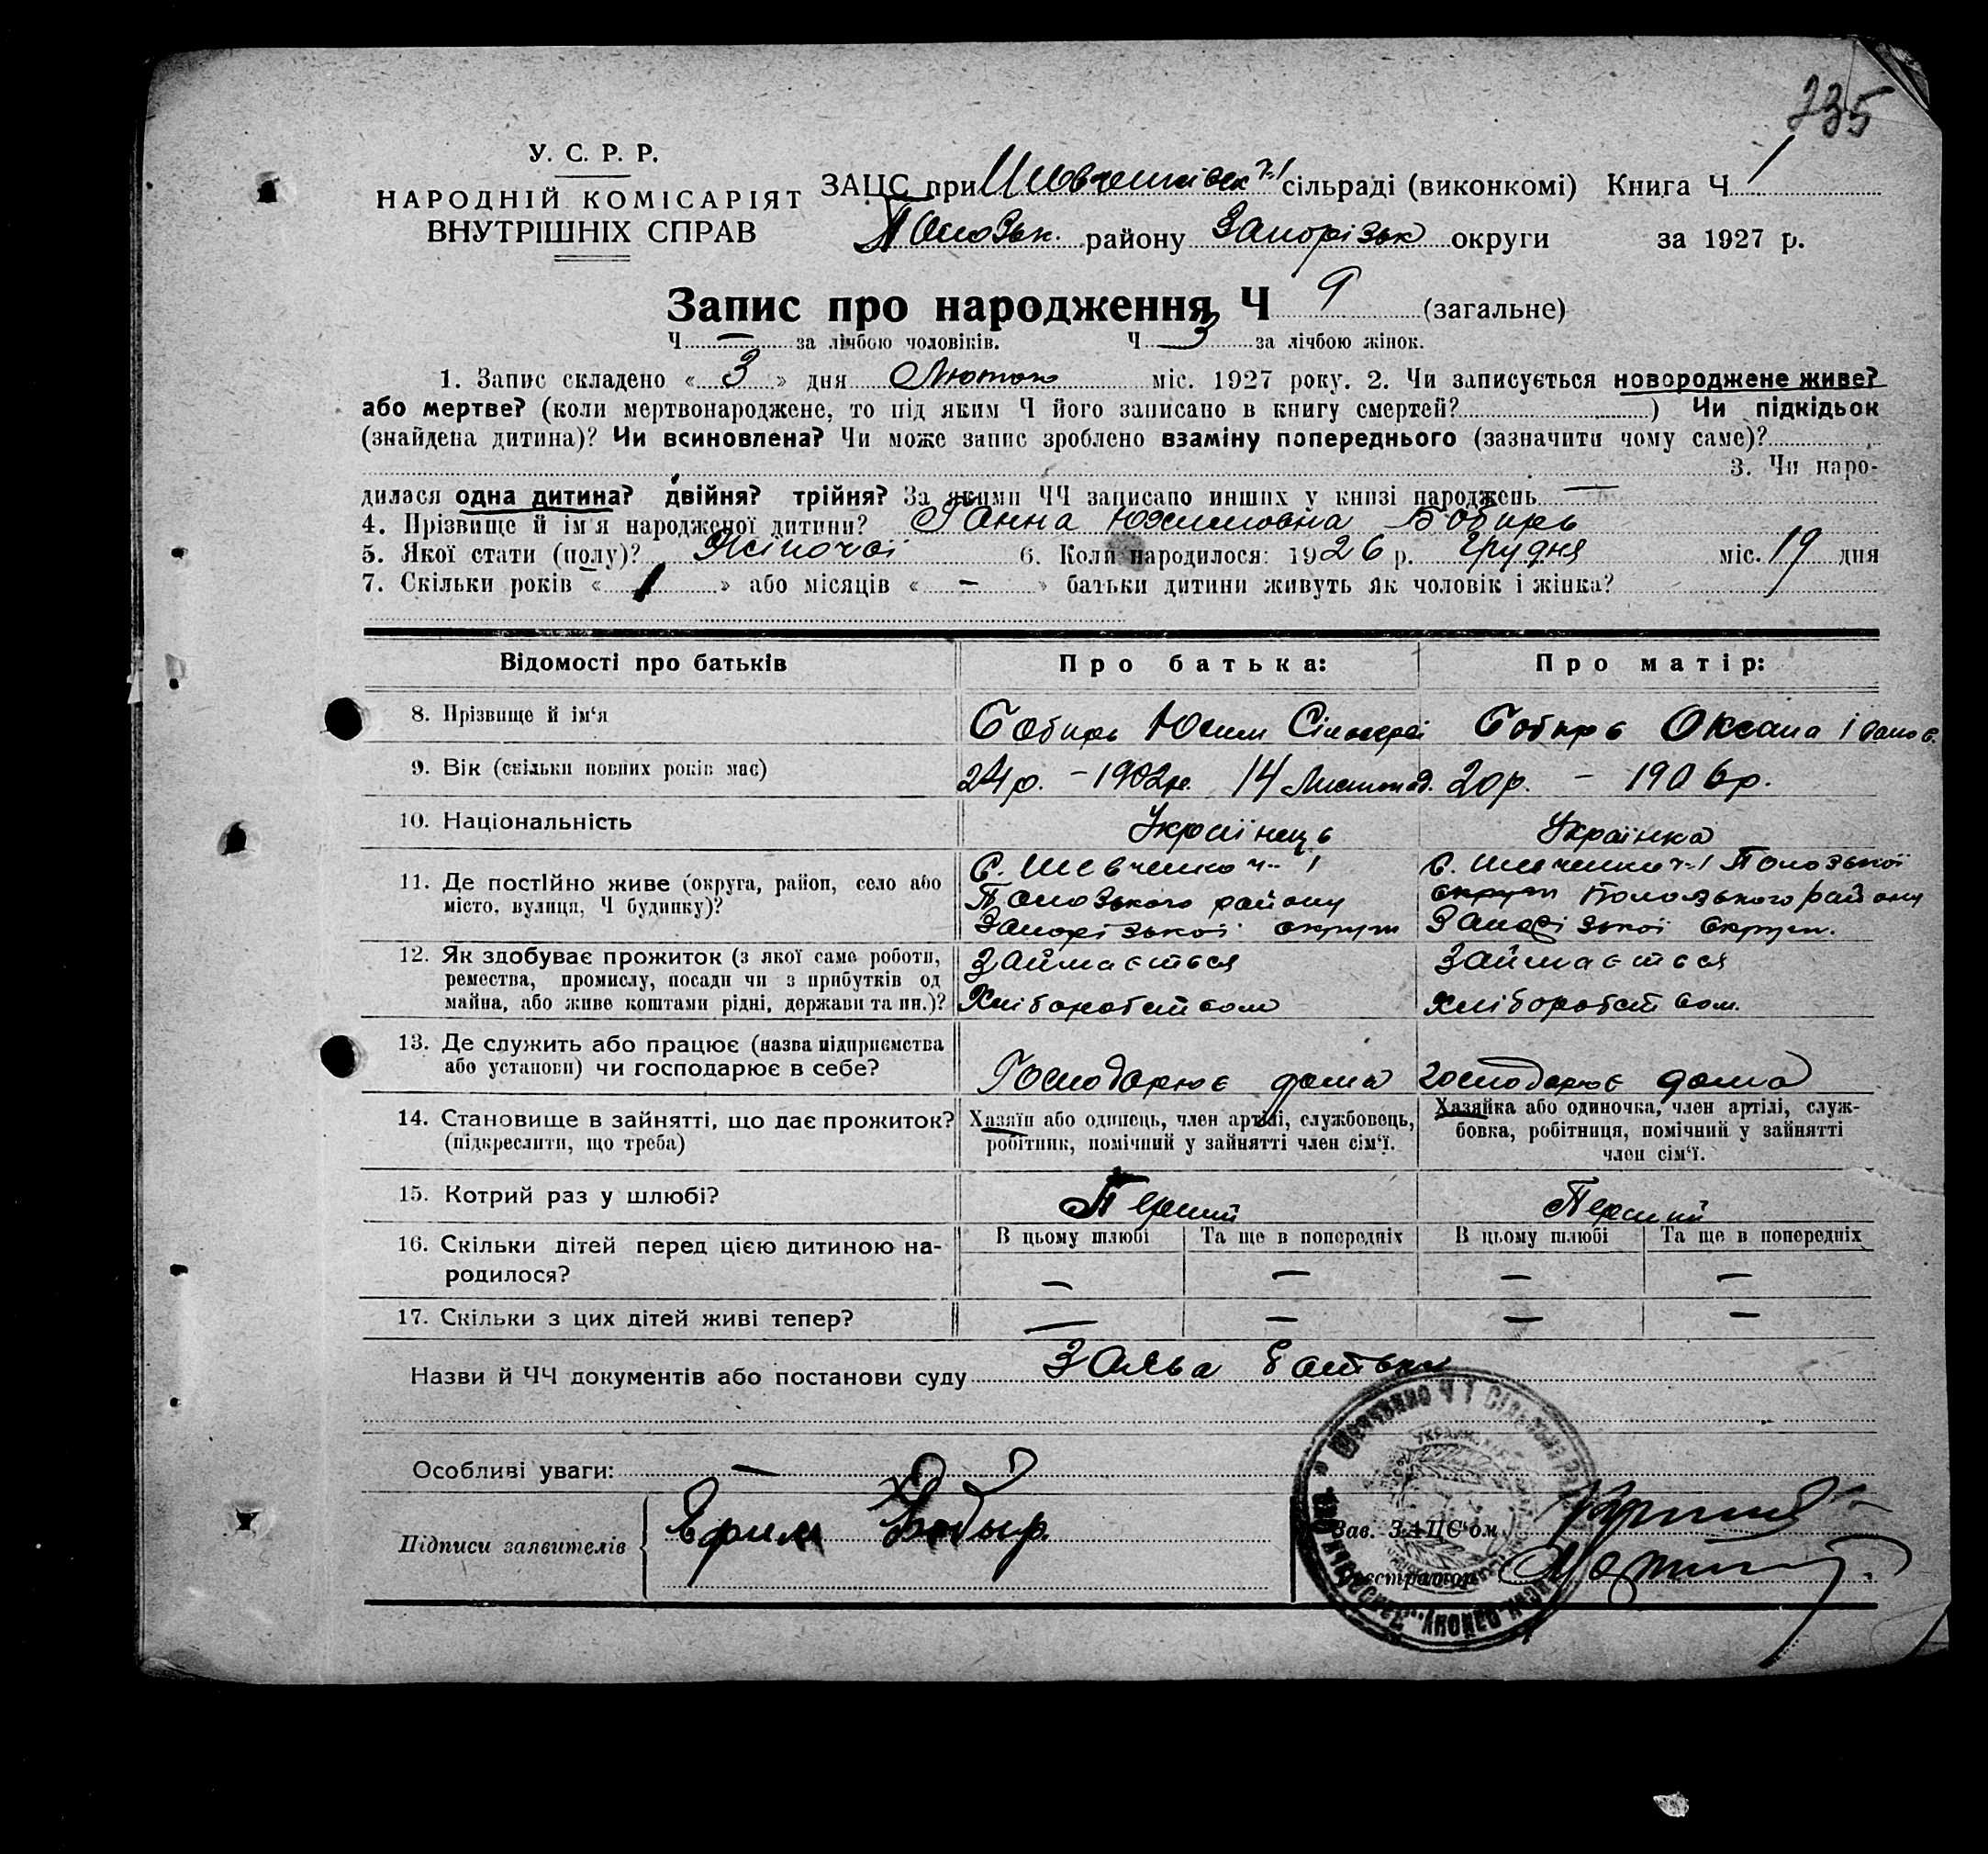 235
У. С. Р. Р.
НАРОДНІЙ КОМІСАРІЯТ
ВНУТРІШНІХ СПРАВ
ЗАЦС при Шевченківск ч-1 сільраді (виконкомі) Книга Ч 1
Полозьк. району Запорізьк округи за 1927 р.
Запис про народження Ч 9 (загальне)
Ч — за лічбою чоловіків. Ч 3 за лічбою жінок.
1. Запис складено « 3 » дня Лютого міс. 1927 року. 2. Чи записується новороджене живе?
або мертве? (коли мертвонароджене, то під яким Ч його записано в книгу смертей? ) Чи підкідьок
(знайдена дитина)? Чи всиновлена? Чи може запис зроблено взаміну попереднього (зазначити чому саме)?
3. Чи наро-
дилася одна дитина? двійня? трійня? За якими ЧЧ записано инших у книзі народжень —
4. Прізвище й ім'я народженої дитини? Ганна Юхимовна Бобирь
5. Якої стати (полу)? Жіночої 6. Коли народилося: 1926 р. Грудня міс. 19 дня
7. Скільки років « 1 » або місяців « — » батьки дитини живуть як чоловік і жінка?
Відомості про батьків Про батька: Про матір:
8. Прізвище й ім'я Бобирь Юхим Бобирь Оксана Іванов.
9. Вік (скільки повних років має) 24р. – 1902р. 14 Листопад. 20р. – 1906р.
10. Національність Українець Українка
11. Де постійно живе (округа, район, село або
місто, вулиця, Ч будинку)?
С. Шевченко ч-1
Полозького району
Запорізької округи
С. Шевченко ч-1 Полозької
округи Полозького району
Запорізької округи.
12. Як здобуває прожиток (з якої саме роботи,
ремества, промислу, посади чи з прибутків од
майна, або живе коштами рідні, держави та ин.)?
Займається
Хліборобством
Займається
хліборобством.
13. Де служить або працює (назва підприємства
або установи) чи господарює в себе?
Господарює дома господарює дома
14. Становище в зайнятті, що дає прожиток?
(підкреслити, що треба)
Хазяїн або одинець, член артілі, службовець,
робітник, помічний у зайнятті член сім'ї.
Хазяйка або одиночка, член артілі, служ-
бовка, робітниця, помічний у зайнятті
член сім'ї.
15. Котрий раз у шлюбі? Перший Перший
16. Скільки дітей перед цією дитиною на-
родилося?
В цьому шлюбі Та ще в попередніх В цьому шлюбі Та ще в попередніх
— — — —
17. Скільки з цих дітей живі тепер? — — — —
Назви й ЧЧ документів або постанови суду Заява батька
Особливі уваги: —
Підписи заявителів Ефим Бобыр.
Зав. ЗАЦС'ом
Реєстратор
Шевченко Ч 1 Сільська Рада